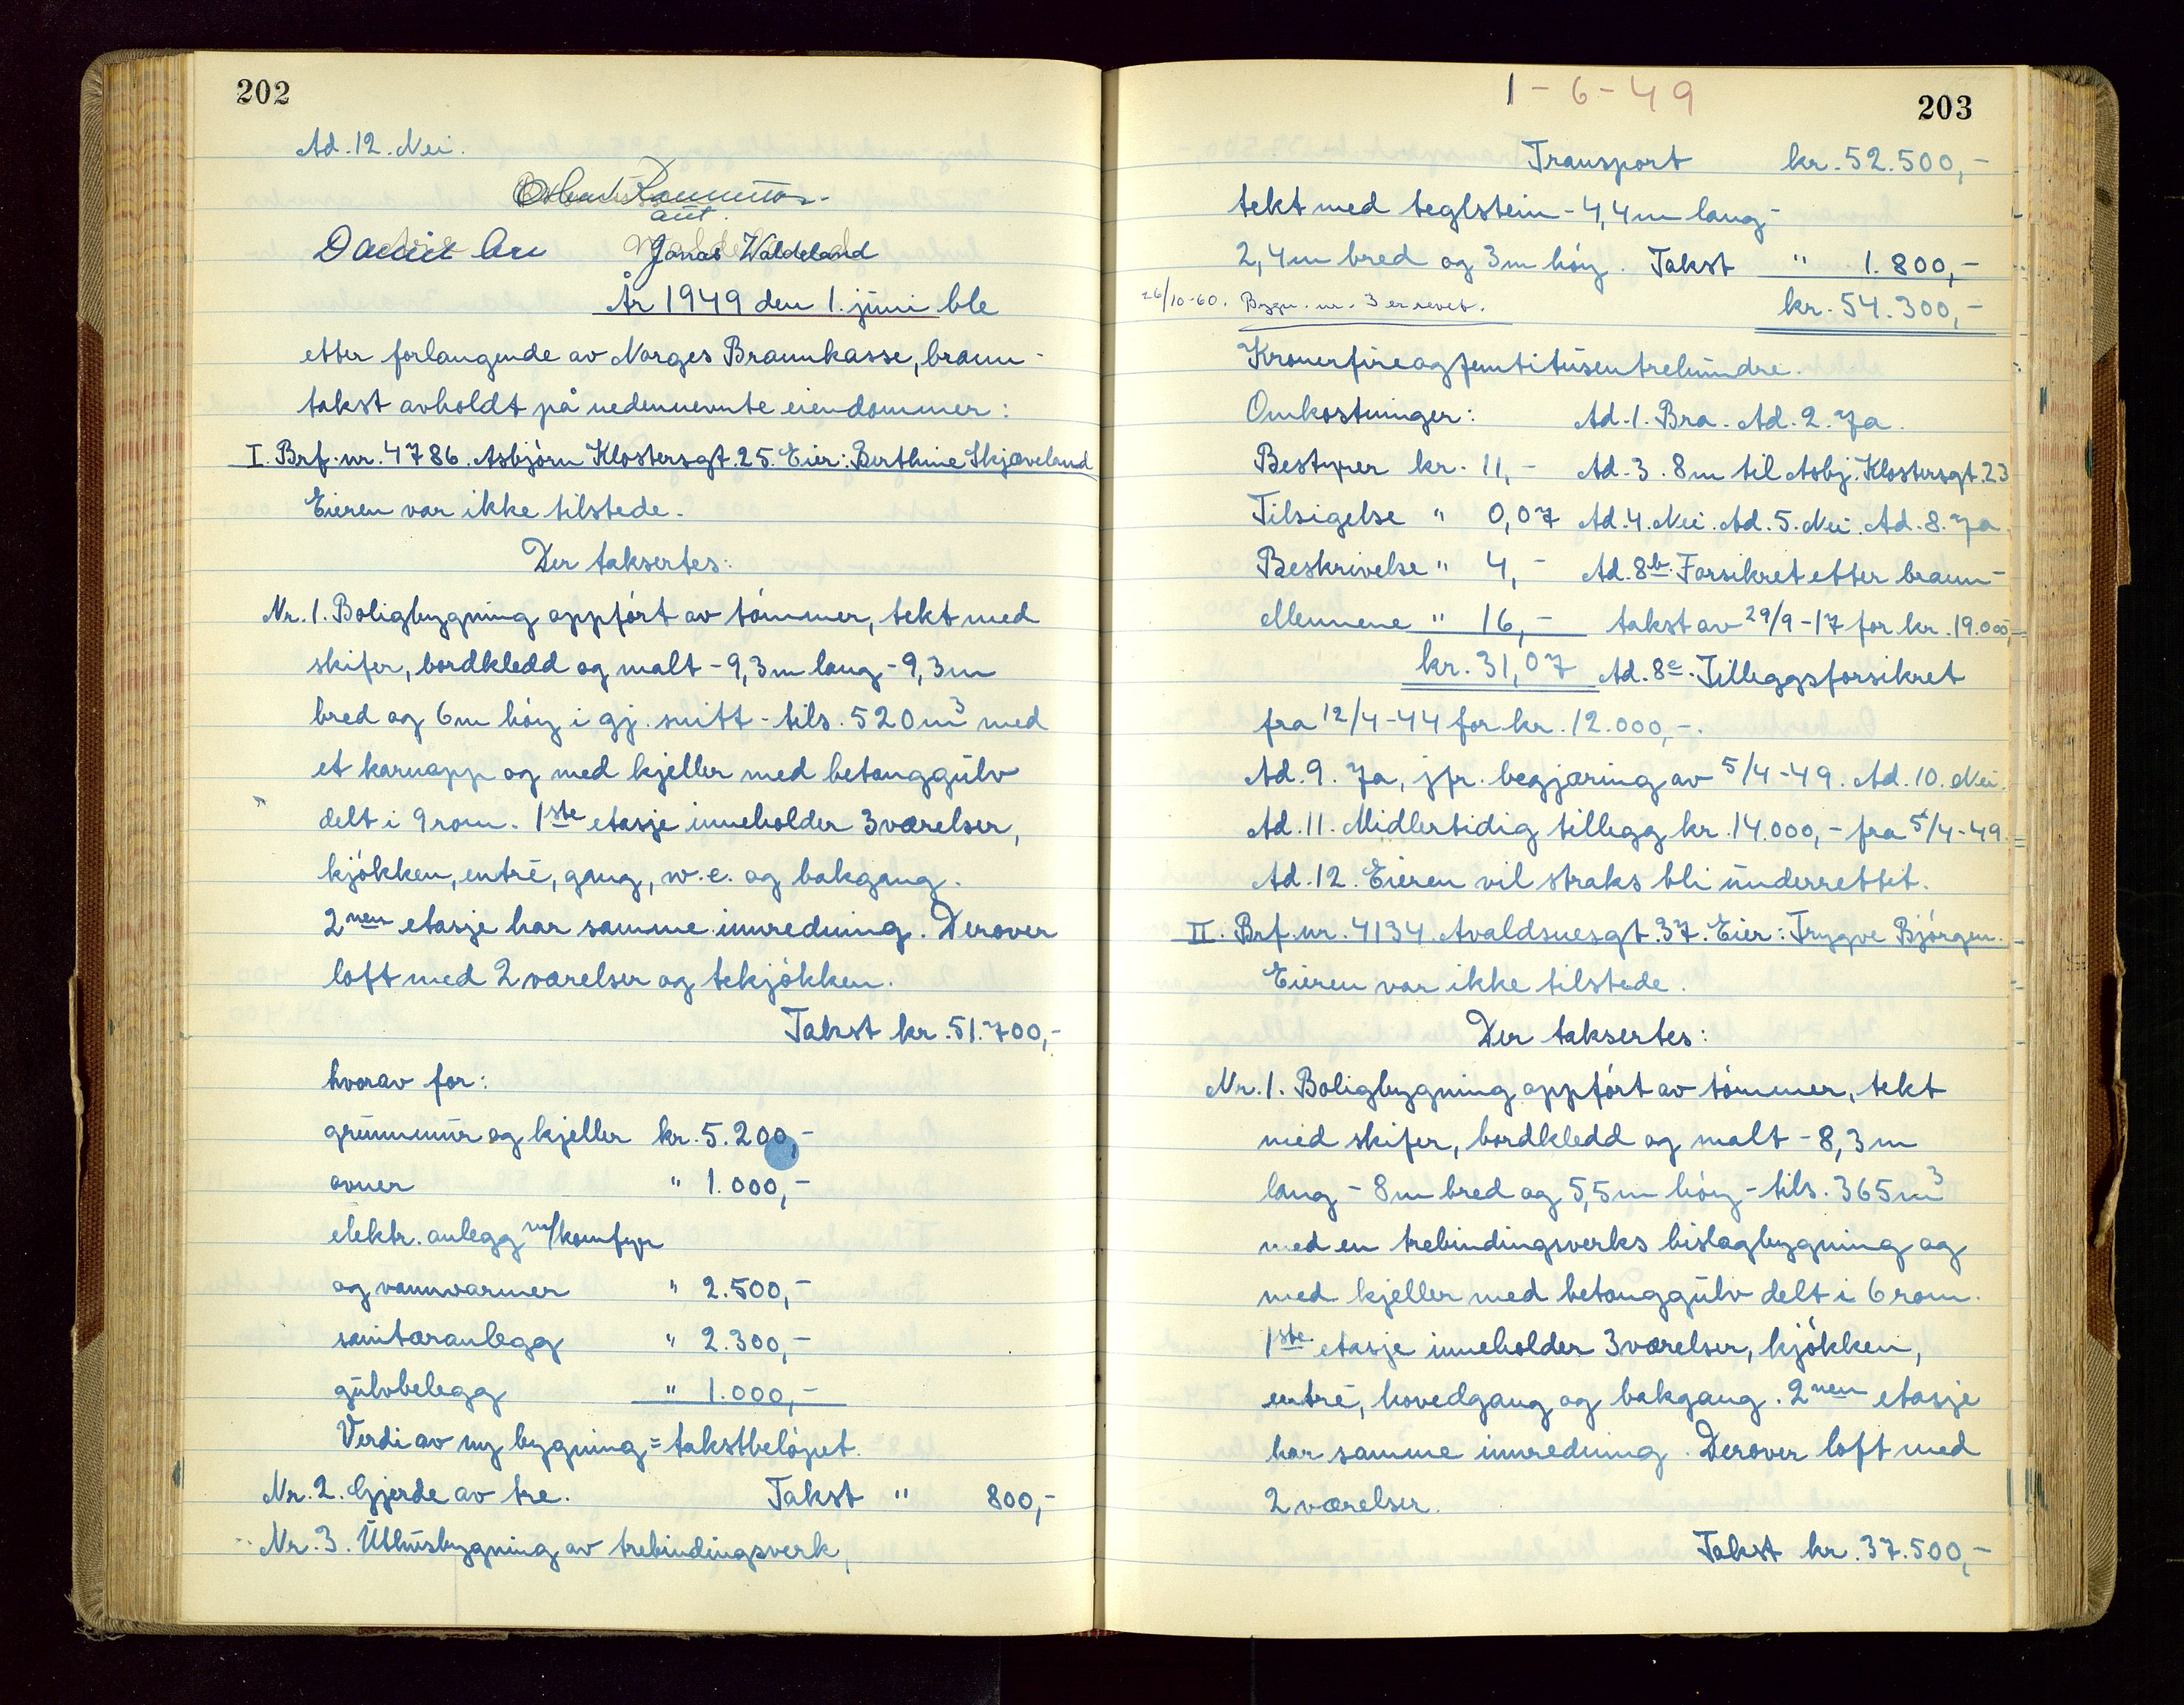 202
Ad. 12. Nei.
aut.
Jonas Waldeland
År 1949 den 1. juni ble
etter forlangende av Norges Brannkasse, brann-
takst avholdt på nedennevnte eiendommer:
I. Brf. nr. 4786. Asbjörn Klostersgt. 25. Eier: Berthine Skjæveland
Eieren var ikke tilstede.
Der taksertes:
Nr. 1. Boligbygning oppført av tömmer, tekt med
skifer, bordkledd og malt - 9,3 m lang - 9,3 m
bred og 6 m höy i gj. snitt - tils. 520 m³ med
et karnapp og med kjeller med betonggulv
delt i 9 rom. 1ste etasje inneholder 3 værelser,
kjökken, entré, gang, w.c. og bakgang.
2nen etasje har samme innredning. Derover
loft med 2 værelser og tekjökken.
Takst kr. 51.700,-
hvorav for:
grunnmur og kjeller kr. 5.200,-
ovner " 1.000,-
elektr. anlegg m/komfyr
og vannvarmer " 2.500,-
sanitæranlegg " 2.300,-
gulvbelegg " 1.000,-
Verdi av ny bygning = takstbelöpet.
Nr. 2. Gjerde av tre. Takst " 800,-
Nr. 3. Uthusbygning av trebindingsverk,
1-6-49
203
Transport kr. 52.500,-
tekt med teglstein - 4,4 m lang -
2,4 m bred og 3 m höy. Takst " 1.800,-
26/10-60. Bygn. nr. 3 er revet.
kr. 54.300,-
Kronerfireogfemtitusentrehundre.
Omkostninger: Ad. 1. Bra. Ad. 2. Ja.
Bestyrer kr. 11,- Ad. 3. 8 m til Asbj. Klostersgt. 23
Tilsigelse " 0,07 Ad. 4. Nei. Ad. 5. Nei. Ad. 8. Ja.
Beskrivelse " 4,- Ad. 8b. Forsikret etter brann-
Mennene " 16,- takst av 29/9-17 for kr. 19.000,-
kr. 31,07 Ad. 8c. Tilleggsforsikret
fra 12/4-44 for kr. 12.000,-.
Ad. 9. Ja, jfr. begjæring av 5/4-49. Ad. 10. Nei.
Ad. 11. Midlertidig tillegg kr. 14.000,- fra 5/4-49.
Ad. 12. Eieren vil straks bli underrettet.
II. Brf. nr. 4134 Avaldsnesgt. 37. Eier: Trygve Björgen.
Eieren var ikke tilstede.
Der taksertes:
Nr. 1. Boligbygning oppfört av tömmer, tekt
med skifer, bordkledd og malt - 8,3 m
lang - 8 m bred og 5,5 m höy - tils. 365 m³
med en trebindingsverks bislagbygning og
med kjeller med betonggulv delt i 6 rom.
1ste etasje inneholder 3 værelser, kjökken,
entré, hovedgang og bakgang. 2nen etasje
har samme innredning. Derover loft med
2 værelser.
Takst kr. 37.500,-